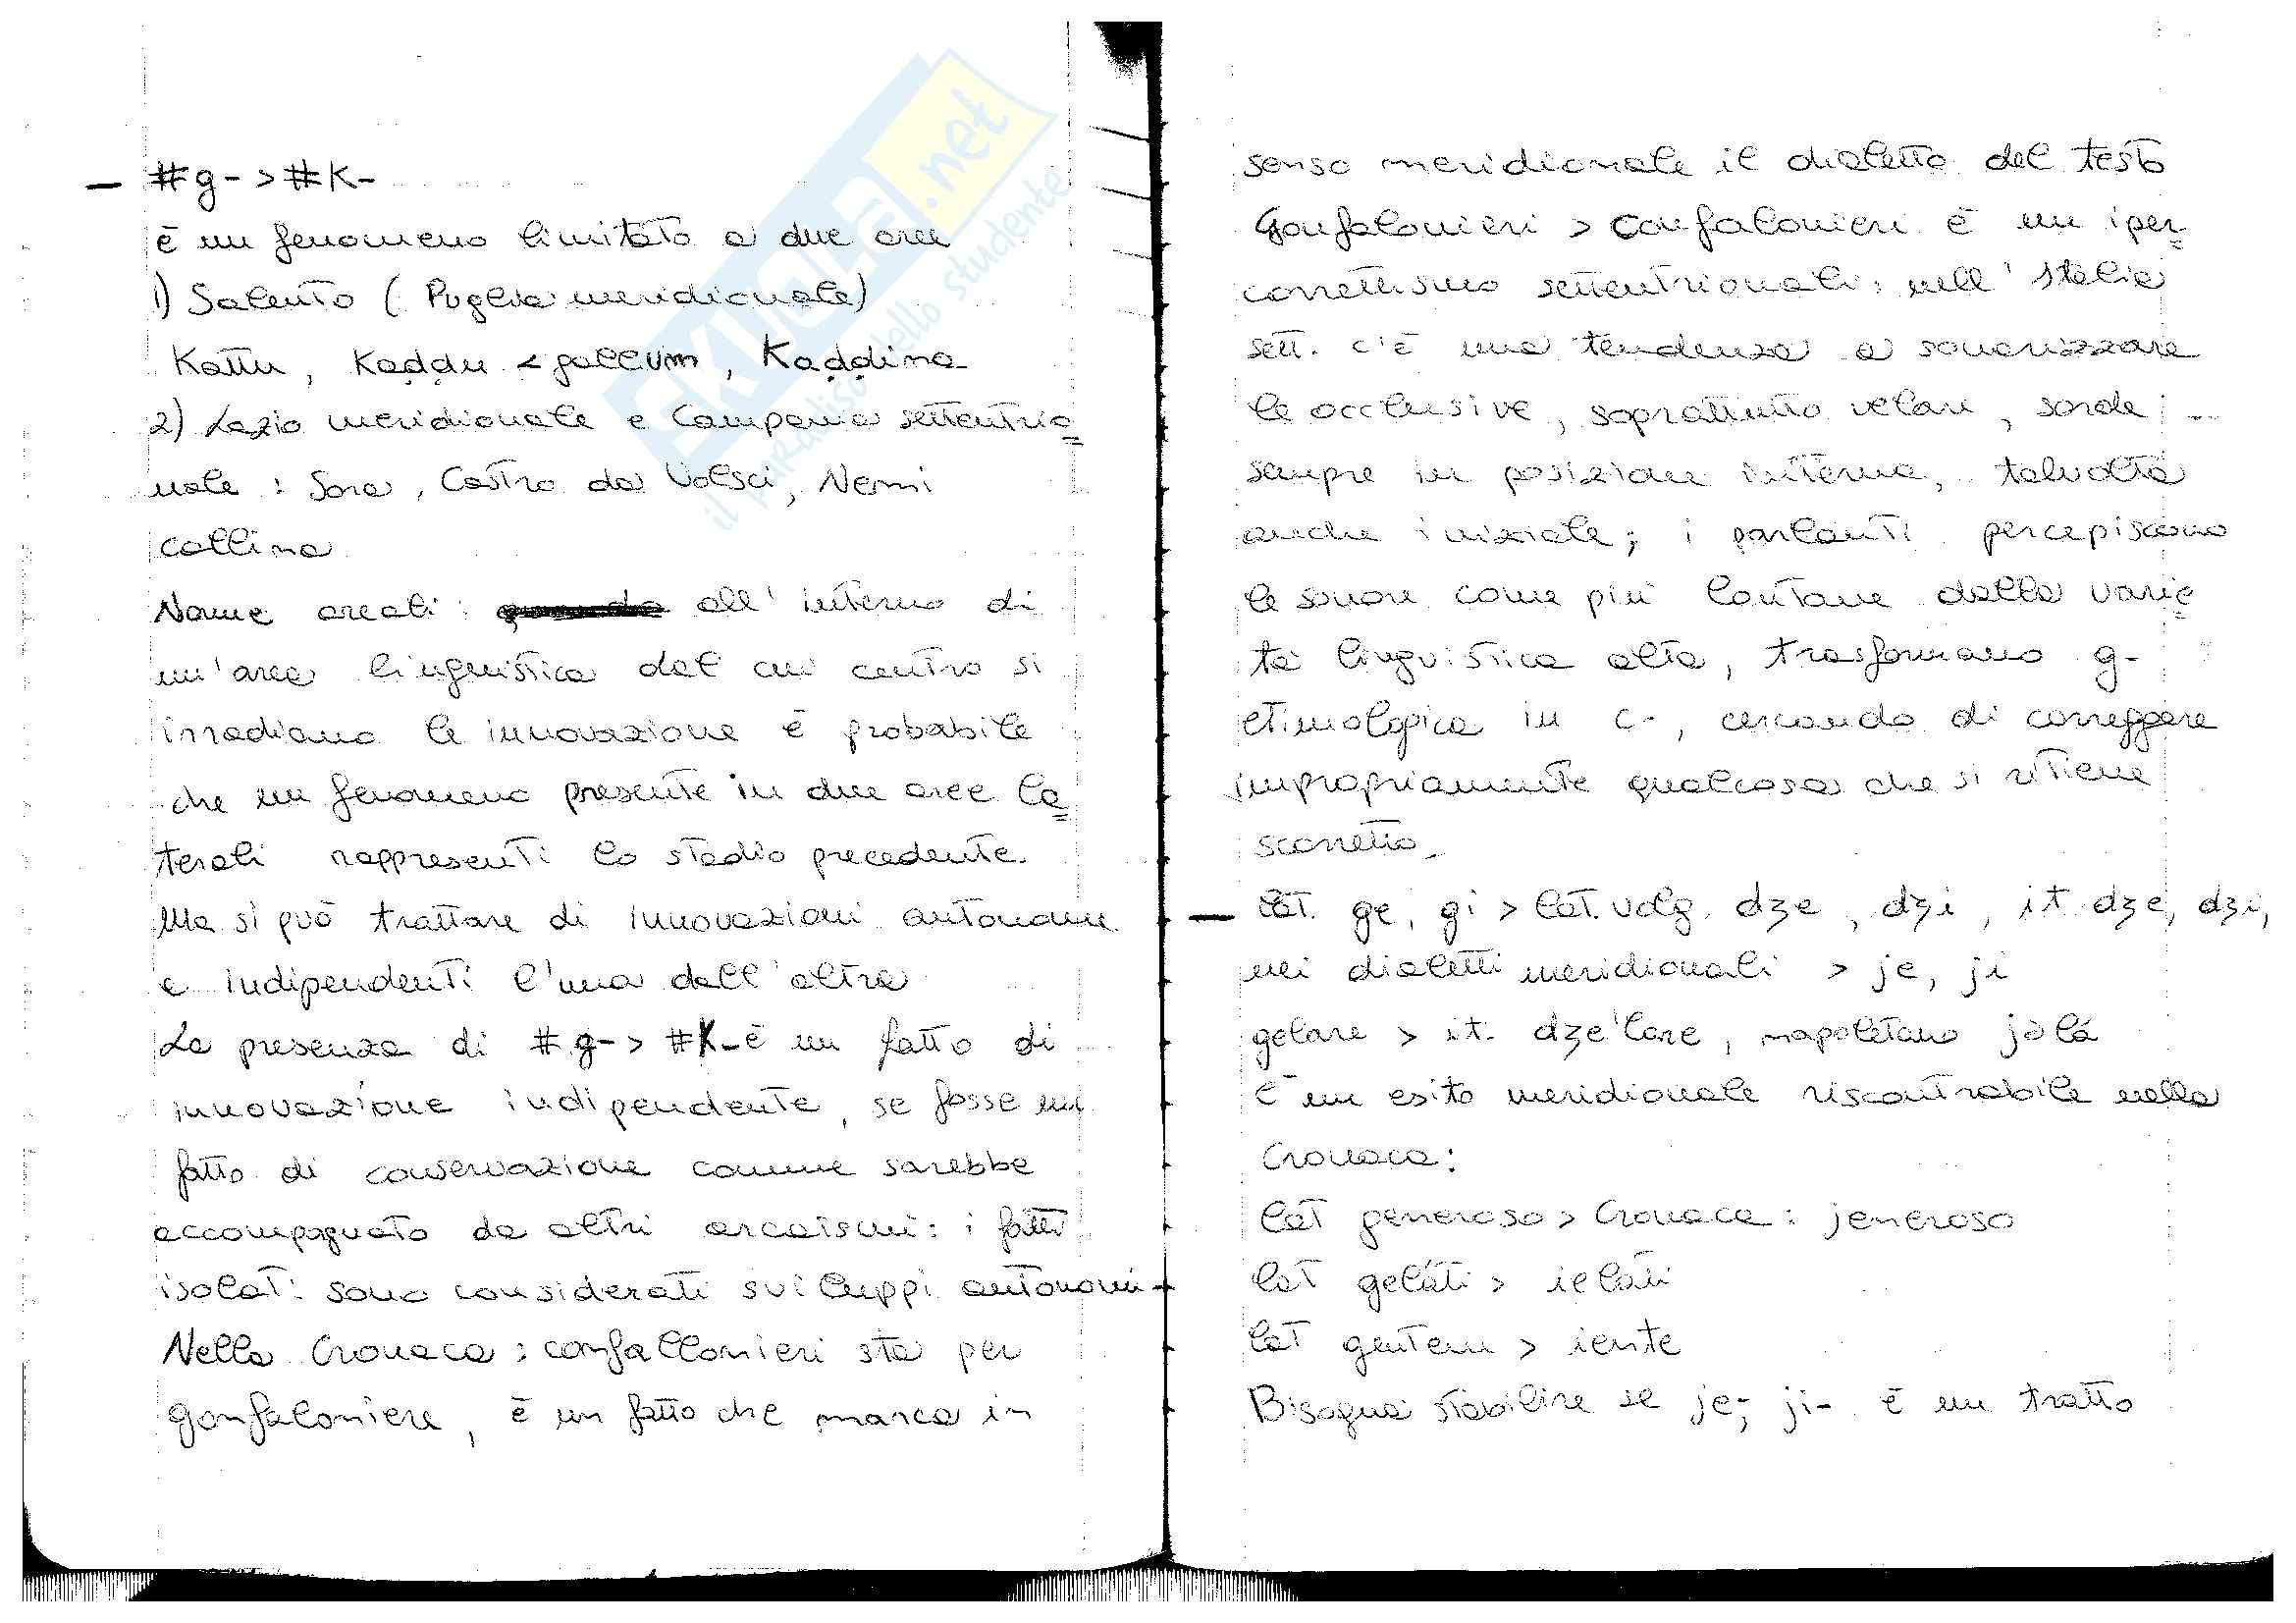 – #g- > #K-
è un fenomeno limitato a due aree
1) Salento (Puglia meridionale)
Kattu, Kaḍḍu < gallum, Kaḍḍina
2) Lazio meridionale e Campania settentrio=
nale : Sora, Castro dei Volsci, Nemi
collina
Norme areali : all'interno di
un'area linguistica dal cui centro si
irradiano le innovazione è probabile
che un fenomeno presente in due aree la=
terali rappresenti lo stadio precedente.
Ma si può trattare di innovazioni autonome
e indipendenti l'una dall'altra
La presenza di #g- > #K- è un fatto di
innovazione indipendente, se fosse un
fatto di conservazione comune sarebbe
accompagnato da altri arcaismi: i fatti
isolati sono considerati sviluppi autonomi
Nella Cronaca : confallonieri sta per
gonfaloniere, è un fatto che marca in
senso meridionale il dialetto del testo
Gonfalonieri > confalonieri è un iper=
correttismo settentrionali: nell'Italia
sett. c'è una tendenza a sonorizzare
le occlusive, soprattutto velari, sorde
sempre in posizione interna, talvolta
anche iniziale; i parlanti percepiscono
le sonore come più lontane dalla varie=
tà linguistica alta, trasformano g-
etimologica in c-, cercando di correggere
impropriamente qualcosa che si ritiene
scorretto
– lat. ge, gi > lat. volg. dʒe, dʒi, it dʒe, dʒi,
nei dialetti meridionali > je, ji
gelare > it. dʒe'lare, napoletano jəlá
È un esito meridionale riscontrabile nella
Cronaca:
lat generoso > Cronaca: jeneroso
lat geláti > ielati
lat gentem > iente
Bisogna stabilire se je-, ji- è un tratto
EKUOLA.net
il paradiso dello studente